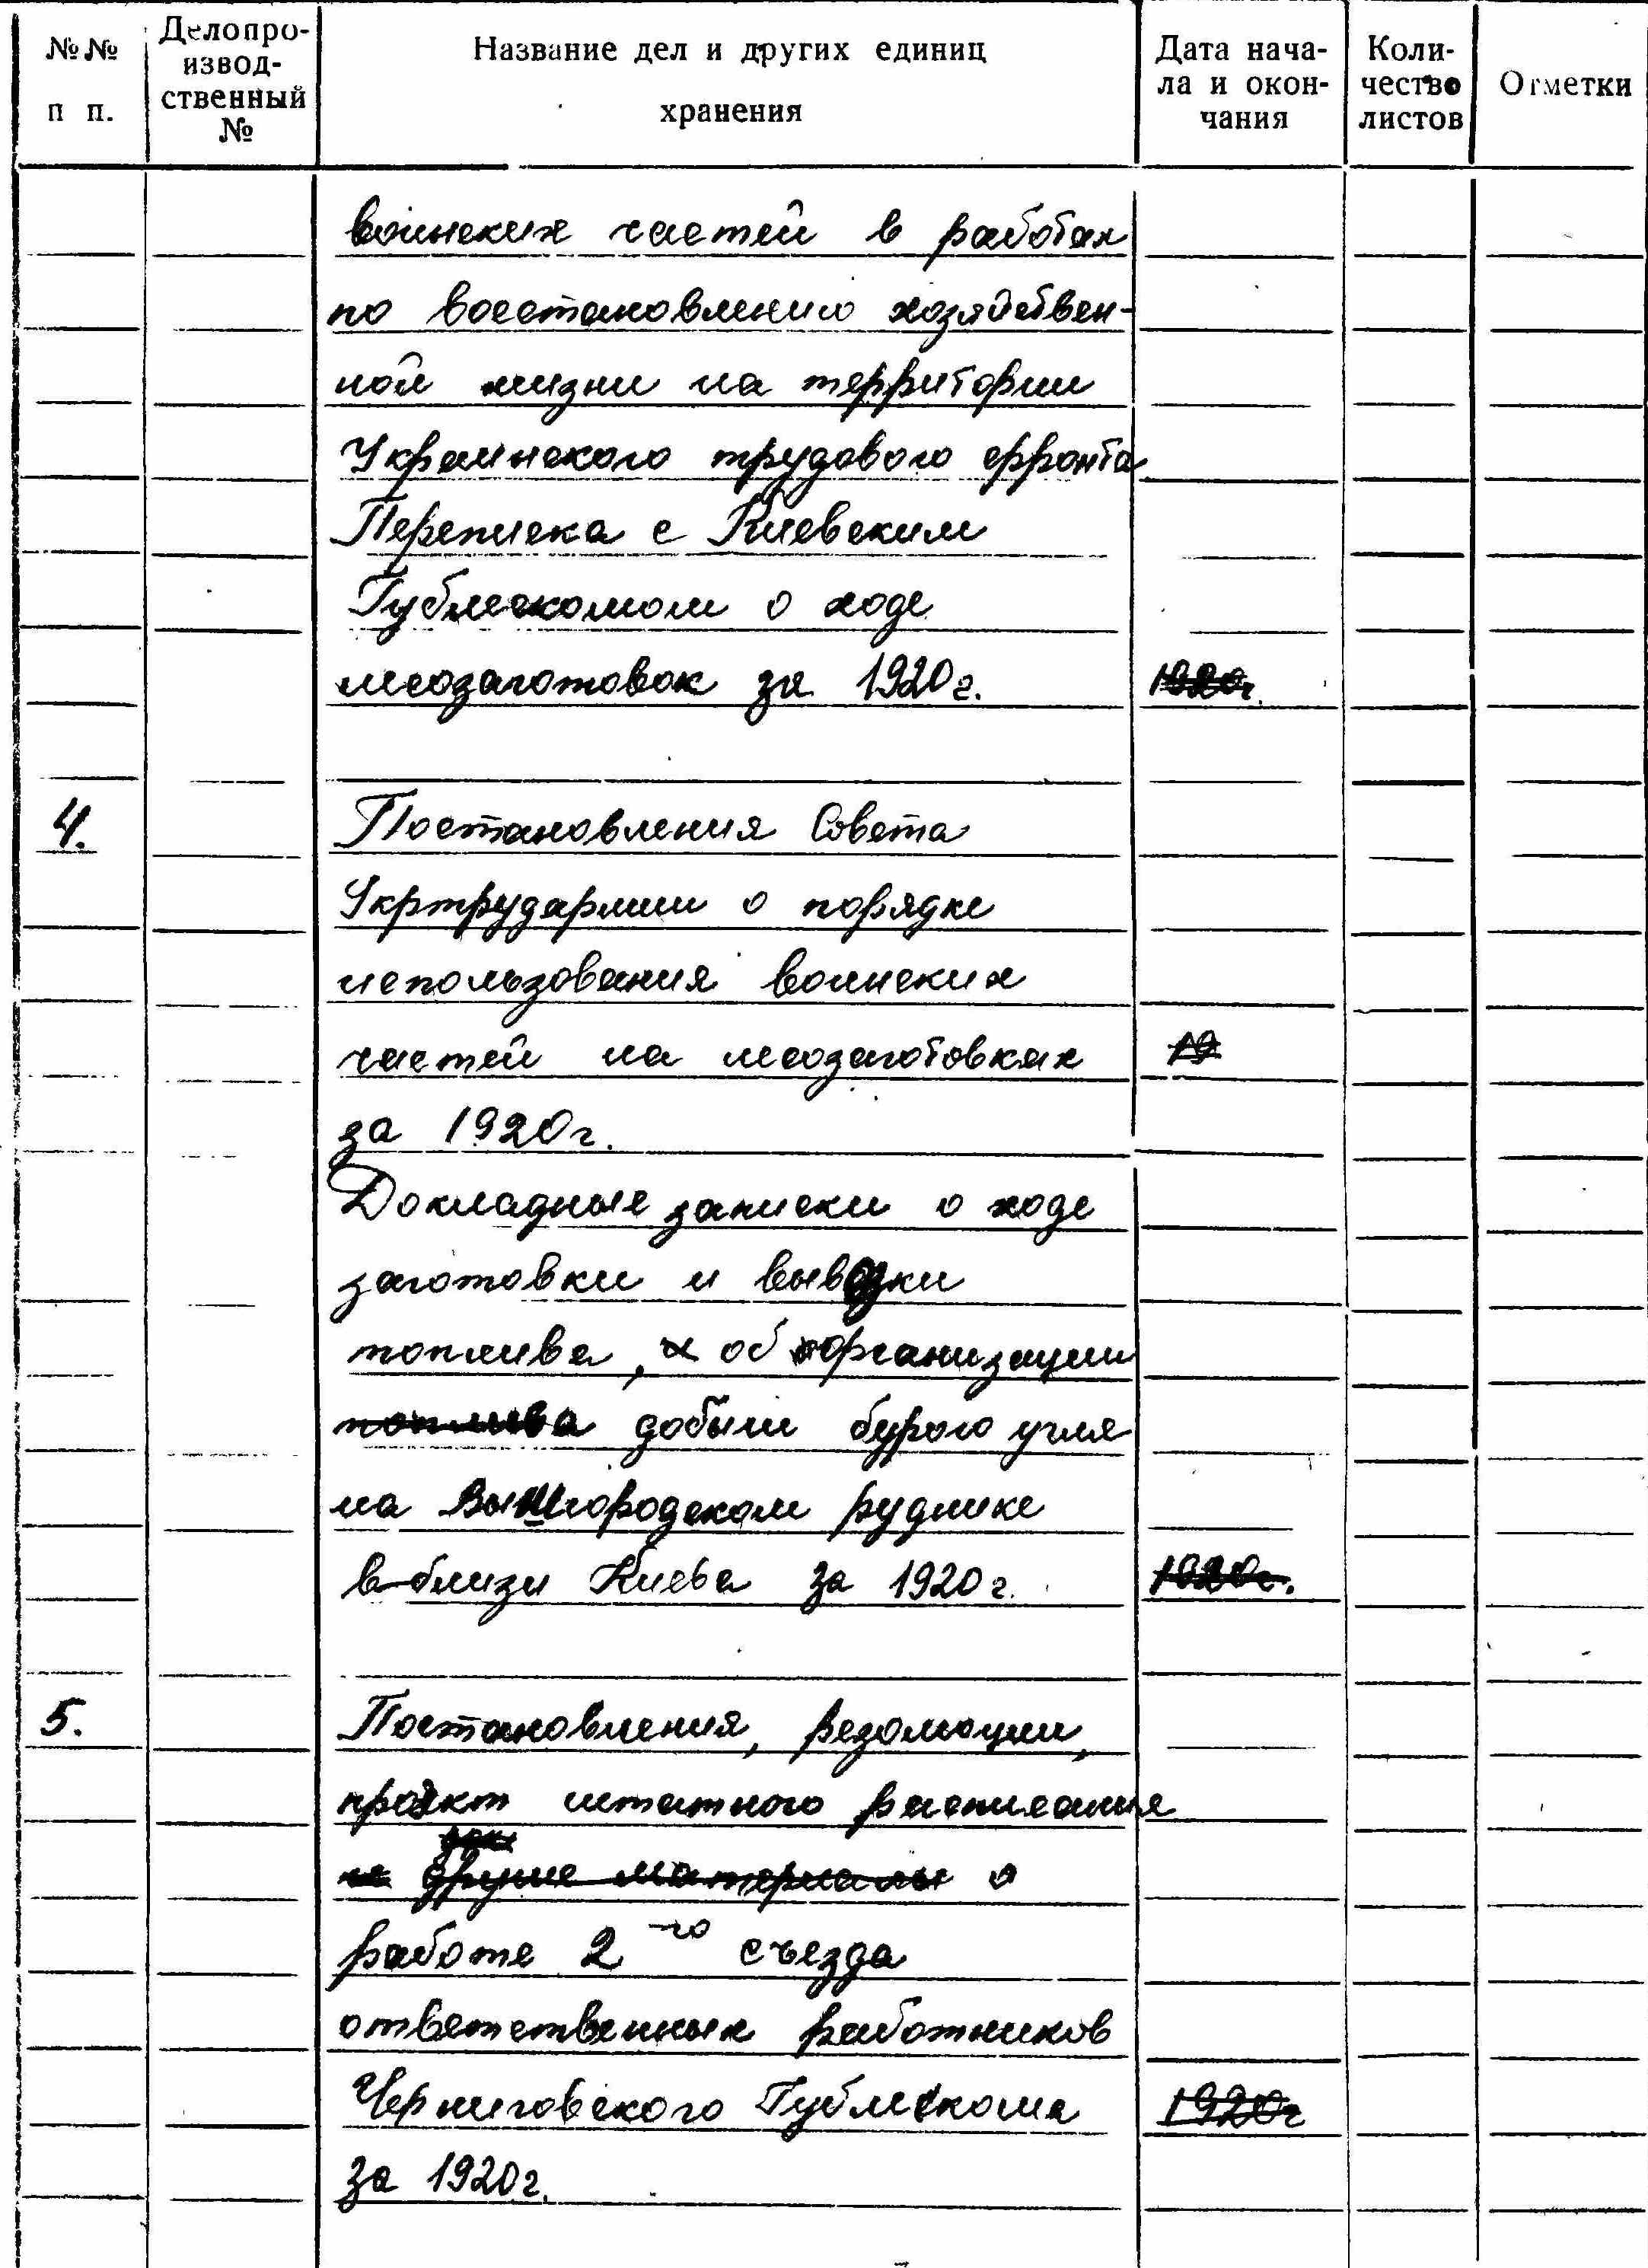 №№ п п.
Делопро-
извод-
ственный
№
Название дел и других единиц
хранения
Дата нача-
ла и окон-
чания
Коли-
чество
листов
Отметки
воинских частей в работах
по восстановлению хозяйствен-
ной жизни на территории
Украинского трудового фронта
Переписка с Киевским
Гублескомом о ходе
лесозаготовок за 1920г. 1920г.
4. Постановления Совета
Укртрудармии о порядке
использования воинских
частей на лесозаготовках 19
за 1920г.
Докладные записки о ходе
заготовки и вывозки
топлива, и об организации
топлива добычи бурого угля
на Вышгородском руднике
вблизи Киева за 1920г. 1920г.
5. Постановления, резолюции,
проект штатного расписания
и другие материалы о
работе 2-го съезда
ответственных работников
Черниговского Гублескома 1920г
за 1920г.